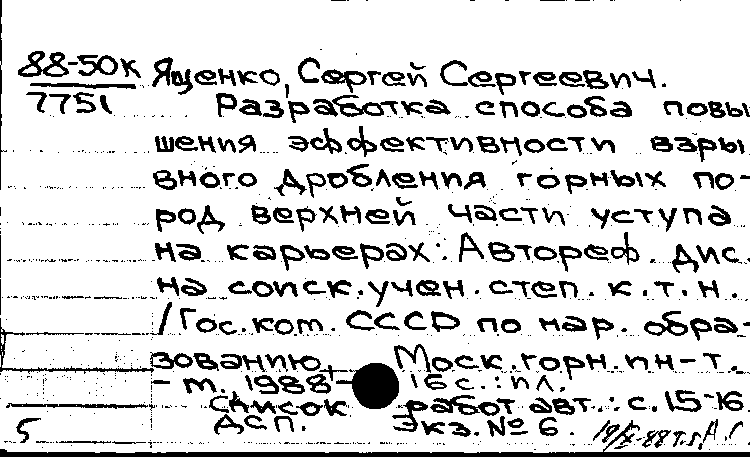 88-50к Ященко, Сергей Сергеевич.
7751 Разработка способа повы
шения эффективности взры
вного дробления горных по-
род верхней части уступа
на карьерах: Автореф. дис.
на соиск. учен. степ. к.т.н.
/Гос.ком. СССР по нар. обра-
зованию, Моск.горн.ин-т.
- М., 1988- 16 с.: ил.
Список работ авт.: с.15-16
5 ДСП. Экз.№ 6.